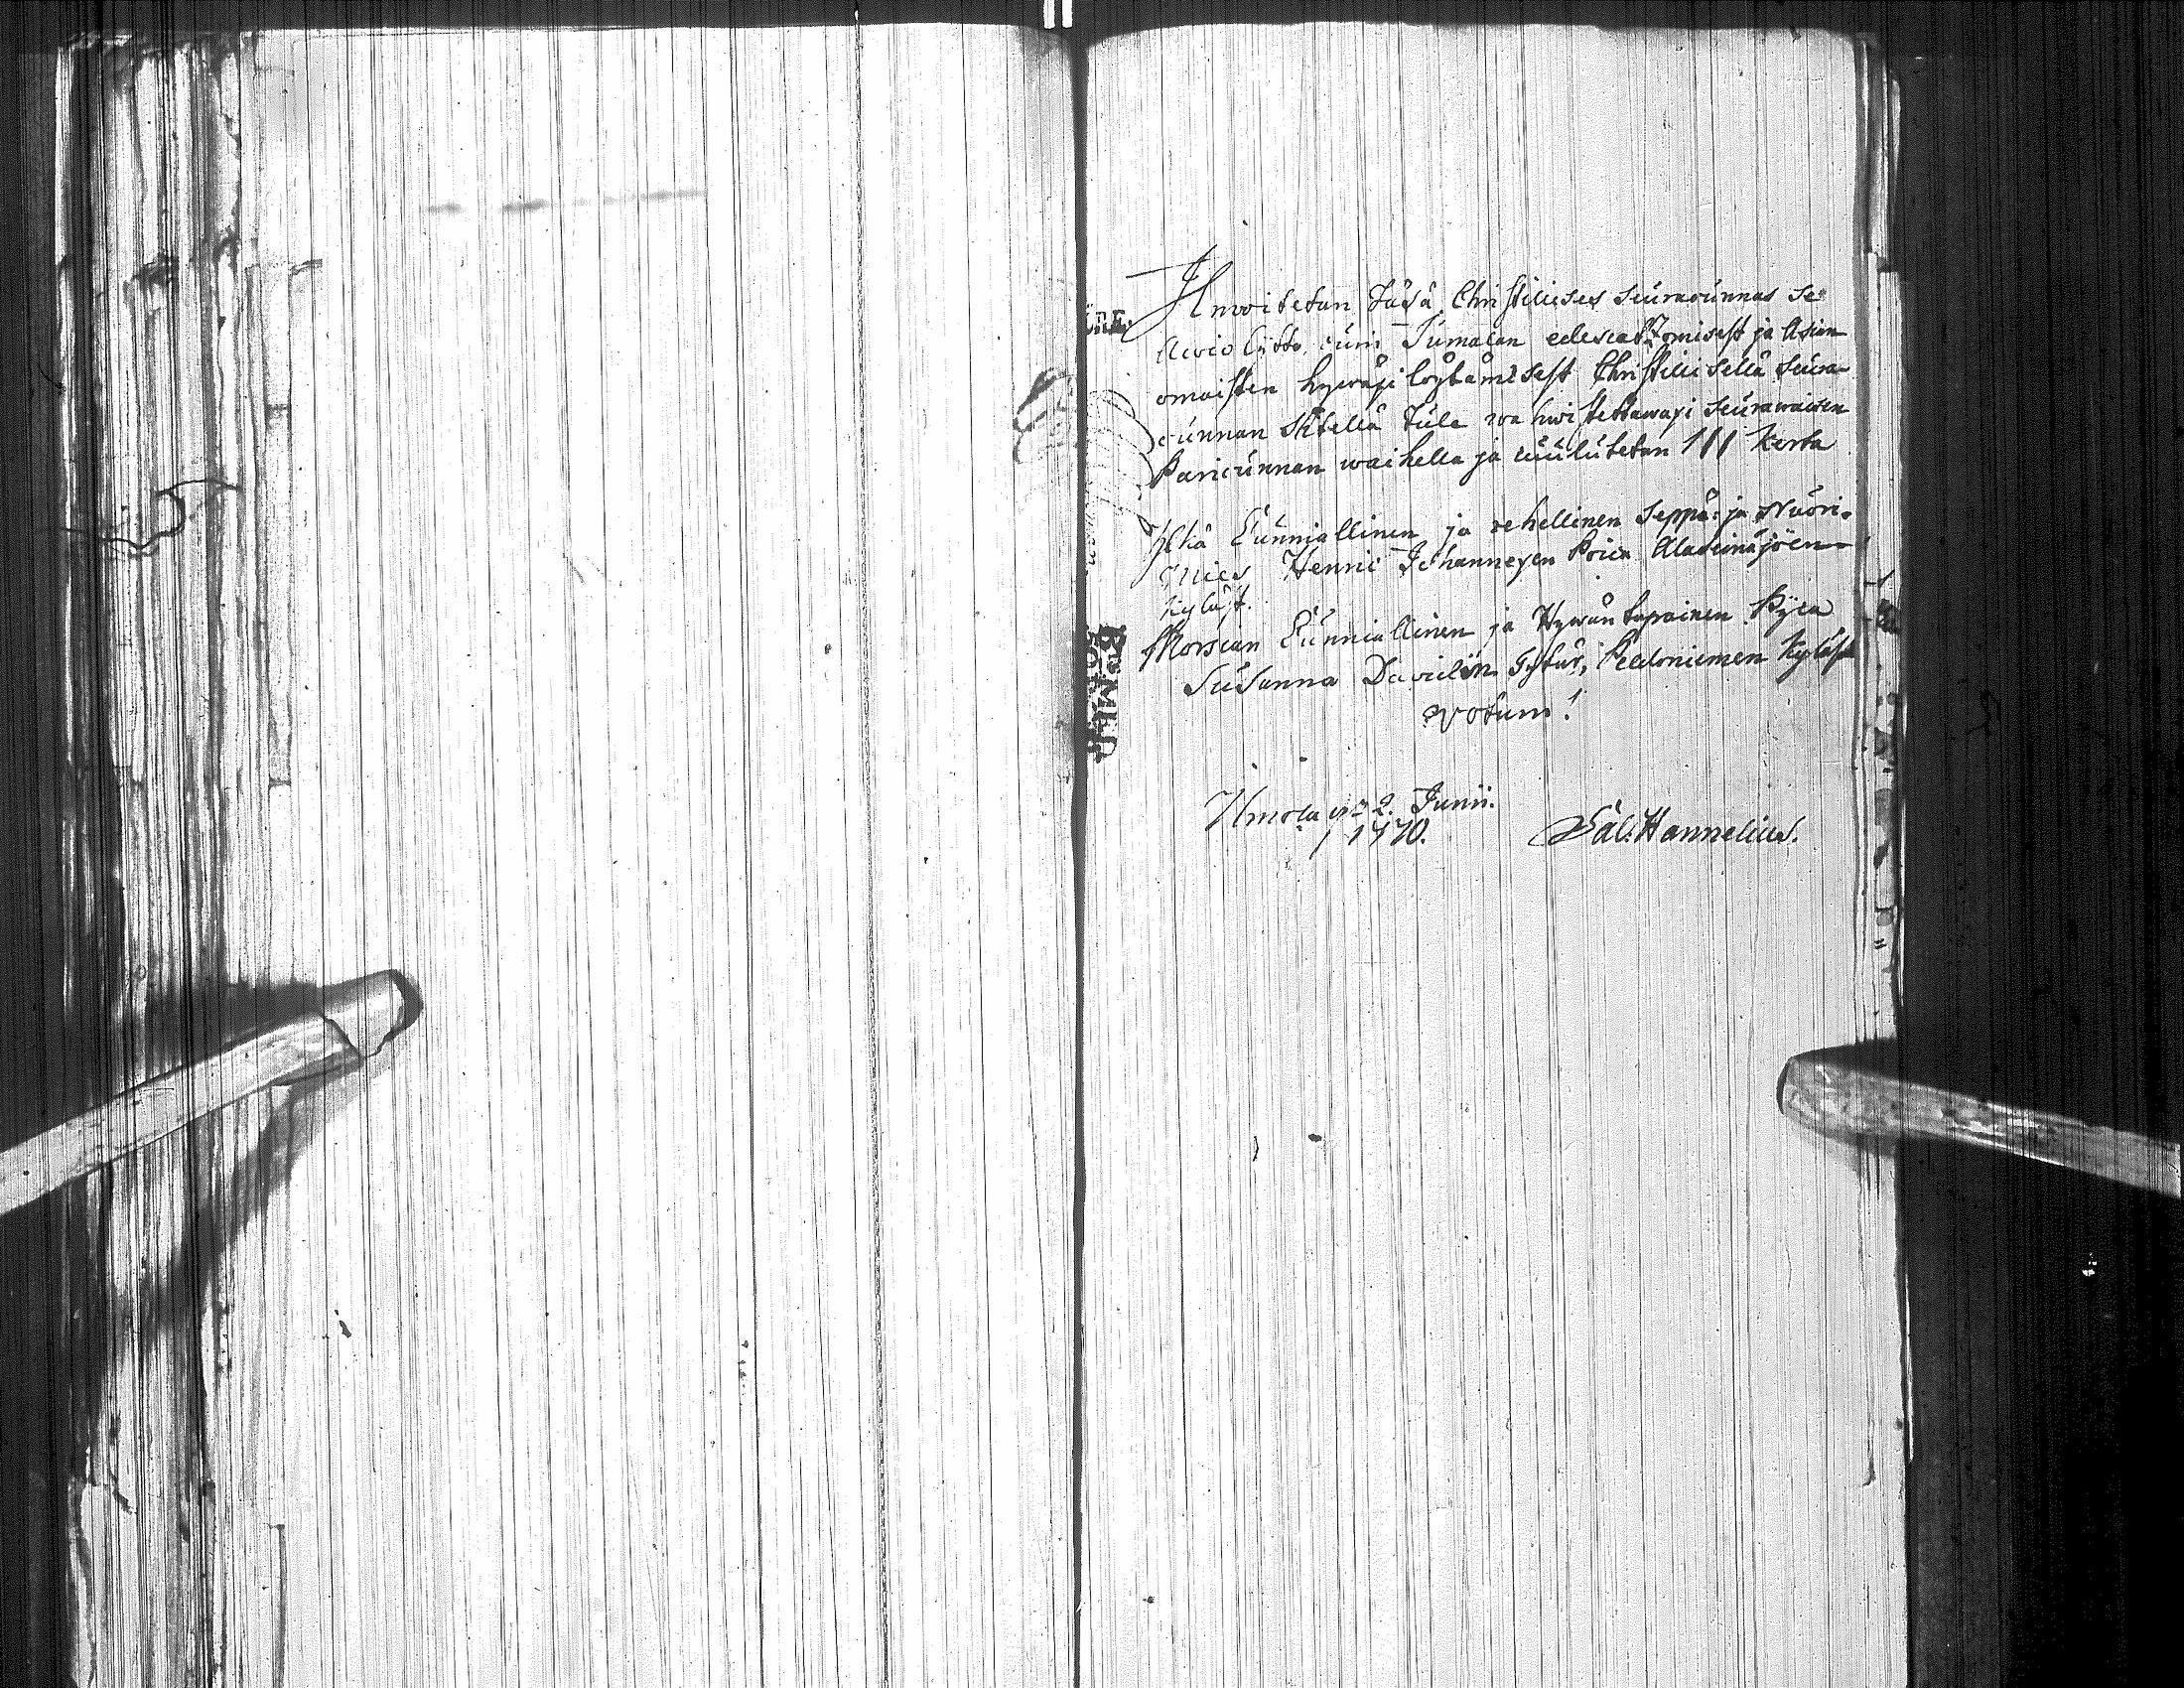 Ilmoitetan täsä Christilises seuracunnas se
Awio lijtto, cuin Jumalan edescatzomisest ja Asian
omaisten hywäxi löytämisest Christilisellä seura-
cunnan sitellä tule wahwistettawaxi seurawaisen
Pariscunnan waihella ja cuulutetan III Kerta
Ylkä Cunniallinen ja rehellinen Seppä: ja Nuori-
Mies Henric Johannexen Poica Alaseinäjoen
kyläst.
Morsian Cunniallinen ja Hywän tapainen Pijca
Susanna Davidin Tytär, Peldoniemen Kyläst
Votum!
Ilmola 2. Junii.
1770.
Sal. Hannelius.